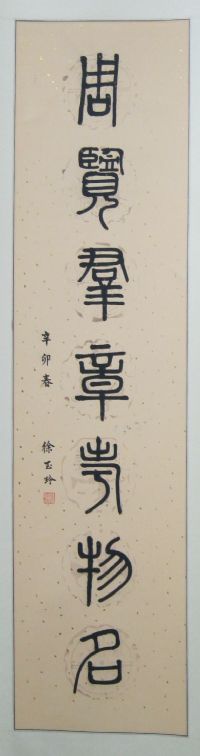 周覽羣章考物名
辛卯春 徐玉玲